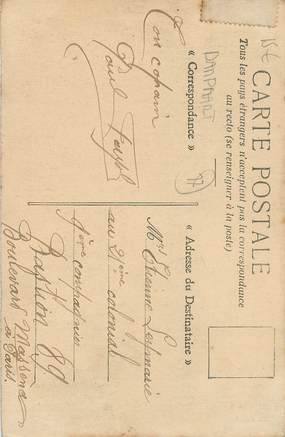 CARTE POSTALE
Tous les pays étrangers n'acceptent pas la correspondance
au recto (se renseigner à la poste)
« Correspondance »
« Adresse du Destinataire »
DAMPMART
77
Ton copain
Paul
Mr Etienne
au 21ème colonial
Bastion 89
Boulevard Masséna
à Paris.